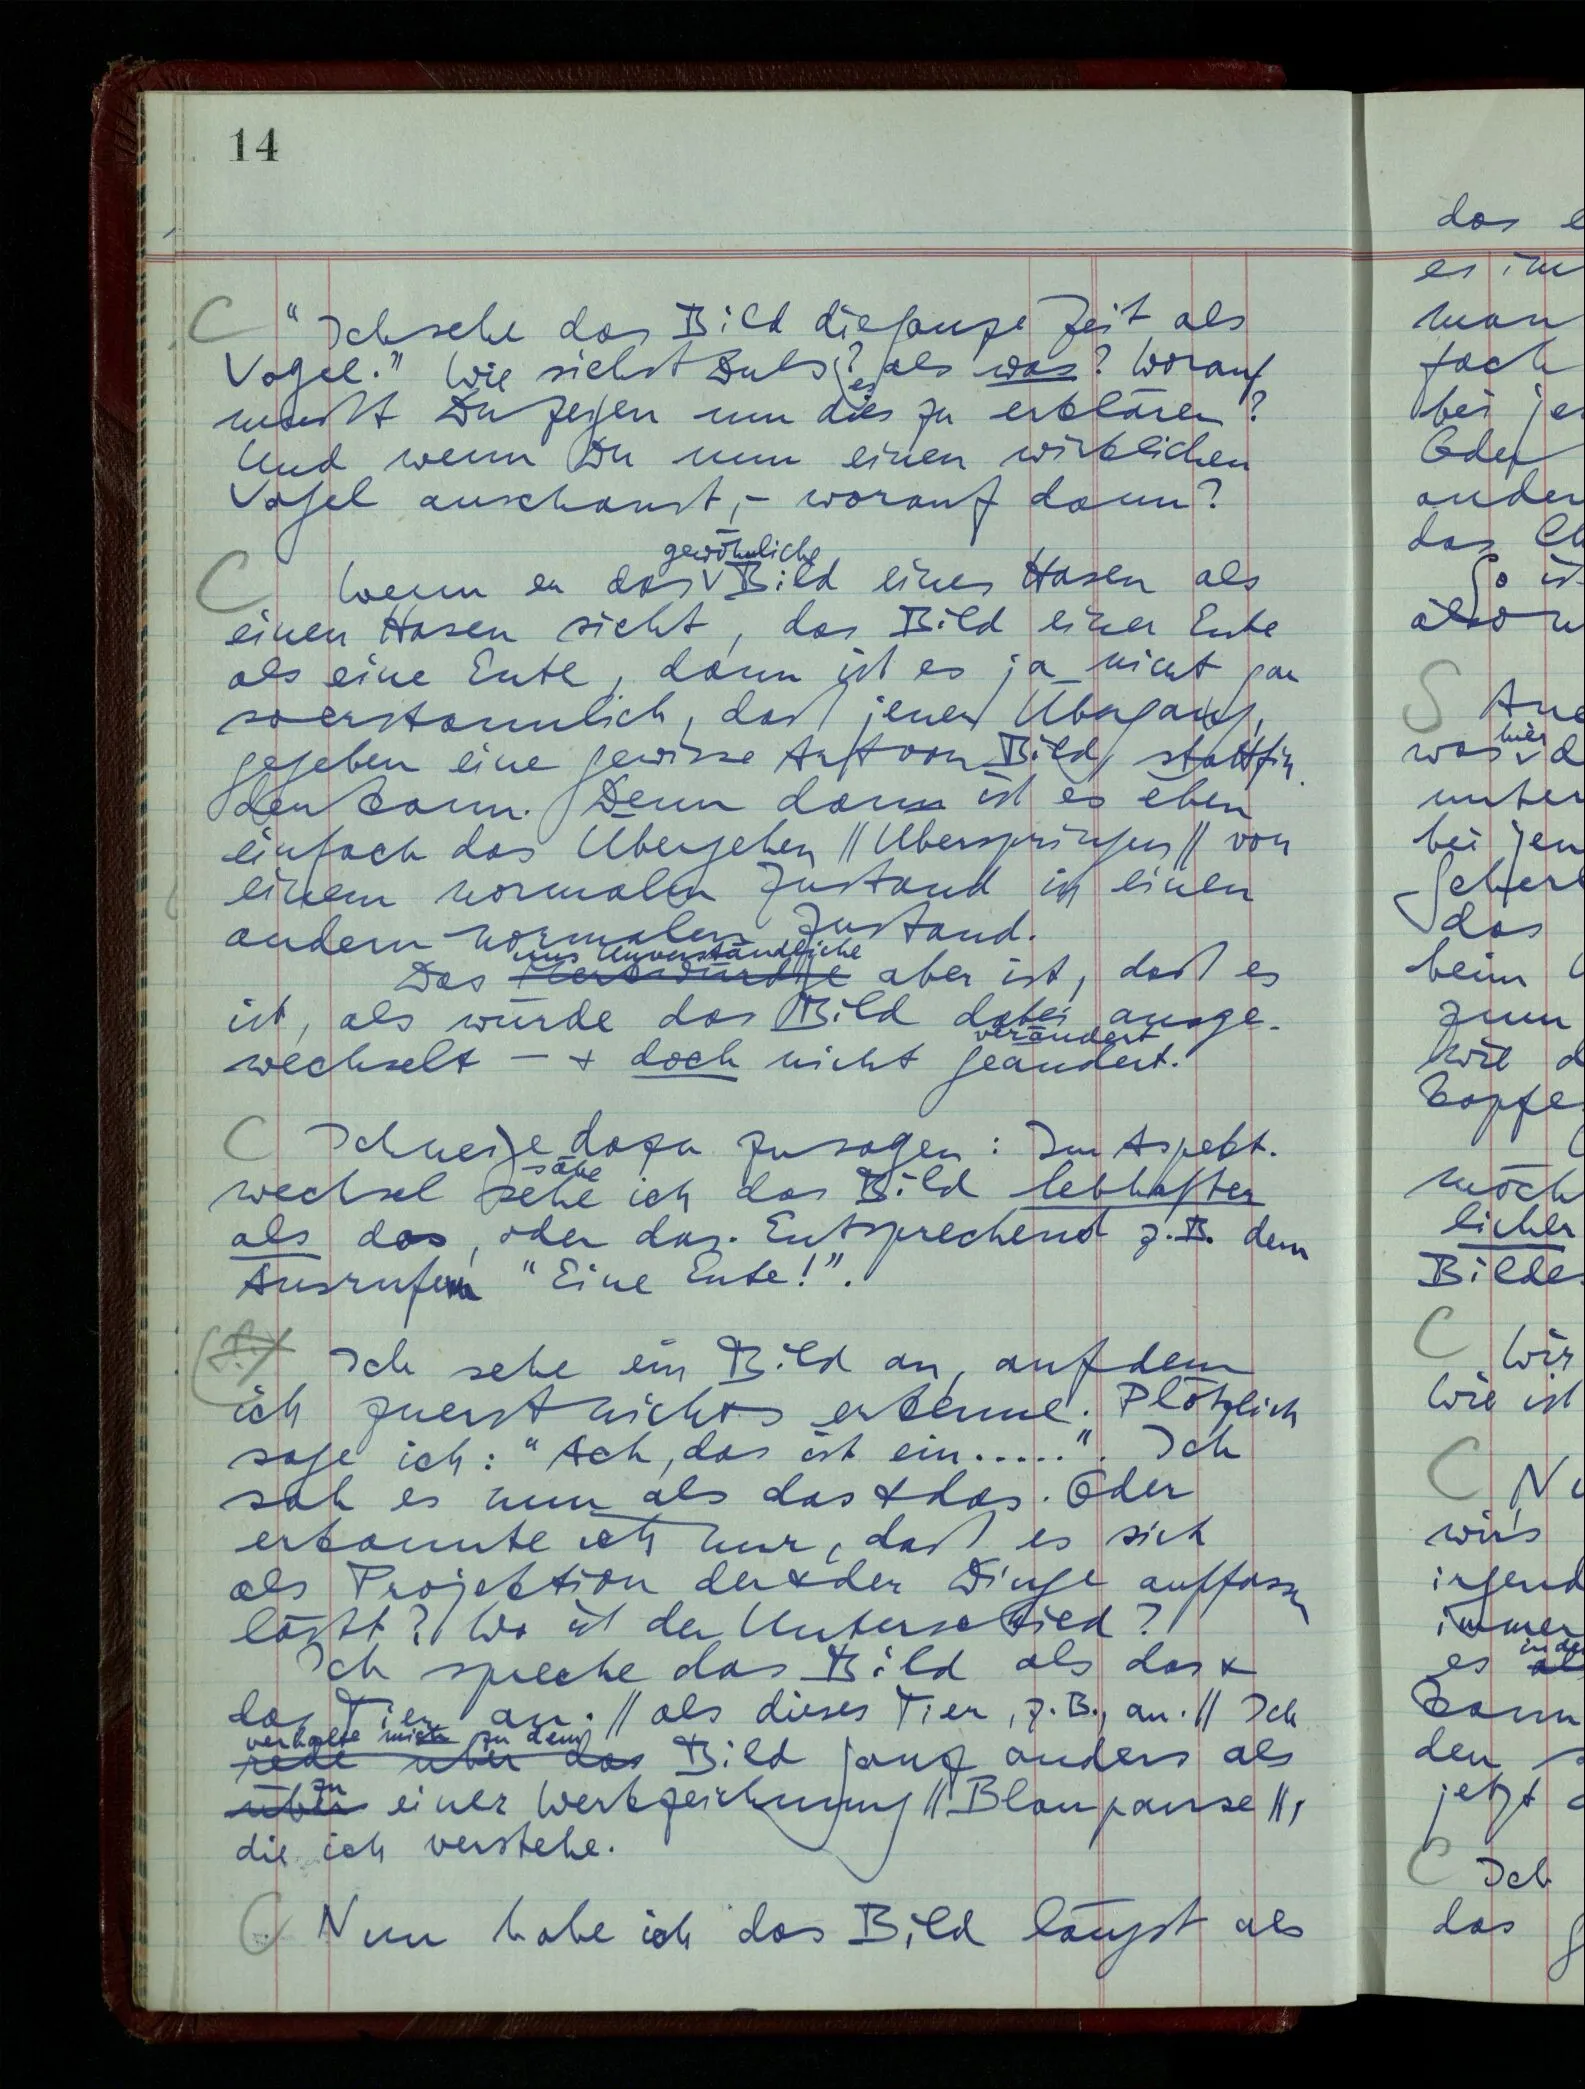 14
C "Ich sehe das Bild die ganze Zeit als
Vogel." Wie siehst Du's? als was? Worauf
es
mußt Du zeigen um dies zu erklären?
Und wenn Du nun einen wirklichen
Vogel anschaust, – worauf dann?
gewöhnliche
C Wenn er das ∨ Bild eines Hasen als
einen Hasen sieht, das Bild einer Ente
als eine Ente, dann ist es ja nicht gar
so erstaunlich, daß jener Übergang,
gegeben eine gewisse Art von Bild, stattfin-
den kann. Denn dann ist es eben
einfach das Übergehen // Überspringen // von
einem normalen Zustand in einen
andern normalen Zustand.
uns Unverständliche
Das Merkwürdige aber ist, daß es
ist, als würde das Bild dabei ausge-
verändert
wechselt – + doch nicht geändert.
C Ich neige dazu zu sagen: Im Aspekt-
sähe
wechsel sehe ich das Bild lebhafter
als das, oder das. Entsprechend z.B. dem
Ausrufen "Eine Ente!".
Ich sehe ein Bild an, auf dem
ich zuerst nichts erkenne. Plötzlich
sage ich: "Ach, das ist ein.....". Ich
sah es nun als das + das. Oder
erkannte ich nur, daß es sich
als Projektion der + der Dinge auffassen
läßt? Wo ist der Unterschied?
Ich spreche das Bild als das +
das Tier an. // als dieses Tier, z.B., an. // Ich
verhalte mich zu dem
rede über das Bild ganz anders als
zu
über einer Werkzeichnung // Blaupause //,
die ich verstehe.
C Nun habe ich das Bild längst als
das
es im
man
fach
bei
Oder
ander
das
So
also
S
hier
was ∨ d
unter
bei jen
das
beim
zum
wie d
Kopfe
möch
licher
Bildes
C Wir
Wie ist
C Nu
wir's
irgend
immer
es
kann
den
jetzt
C Ich
das